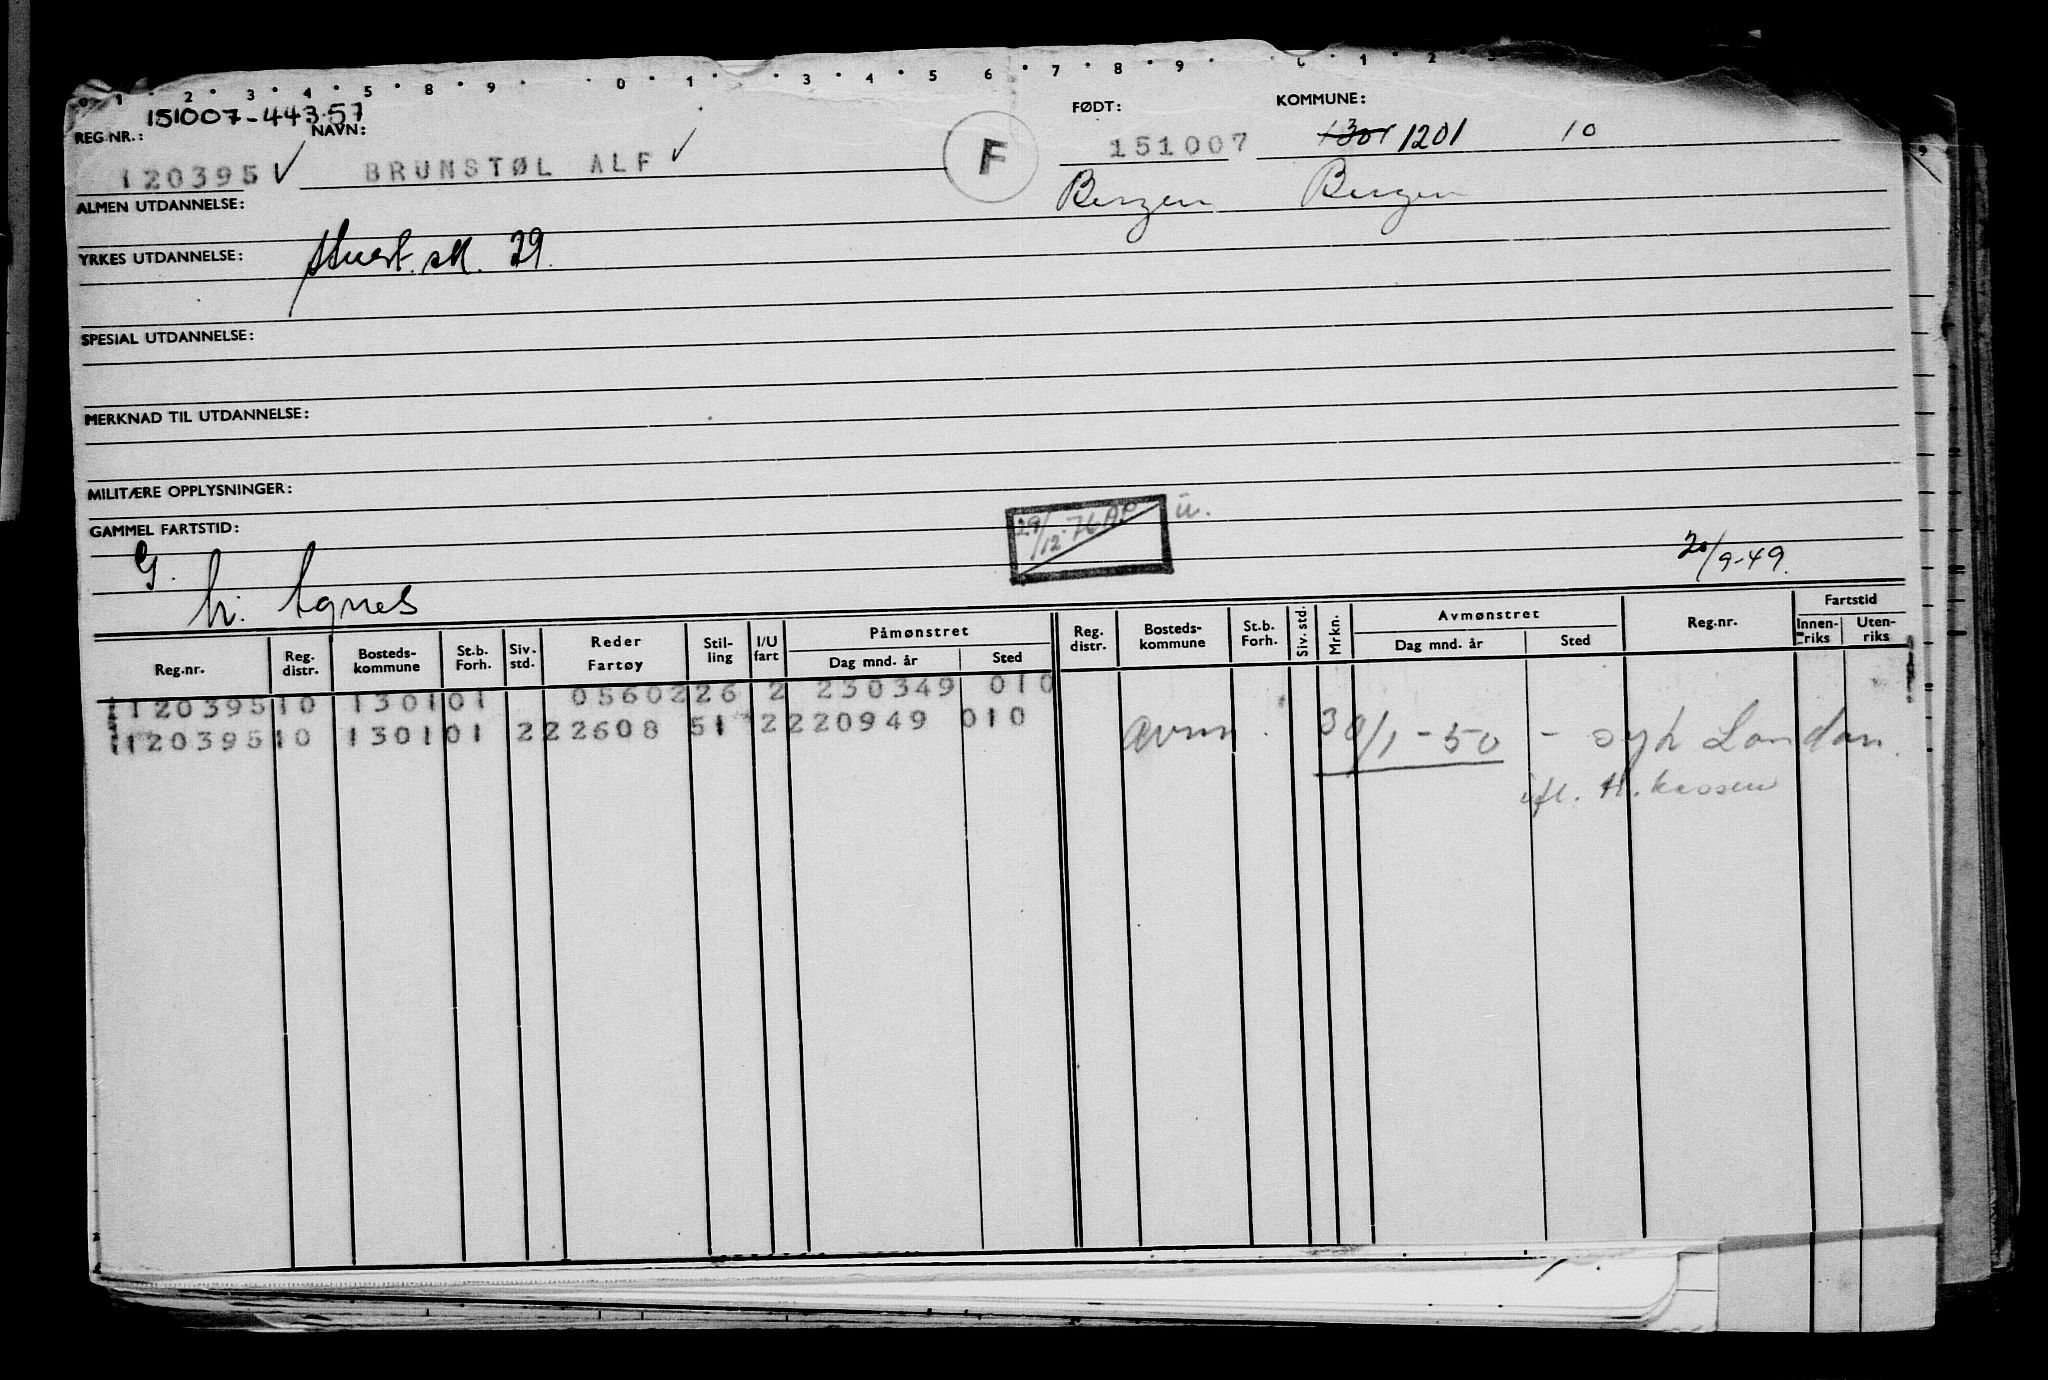 0 1 · 2 · 3 · 4 · 5 · 8 · 9 · · 0 · 1 · · 3 · 4 · 5 6 · 7 · 8 · 9 · 1 · 2
151007-44357
REG.NR.: NAVN: FØDT: KOMMUNE:
120395 ✓ BRUNSTØL ALF ✓ F 151007 1301 1201 10
ALMEN UTDANNELSE: Bergen Bergen
YRKES UTDANNELSE: Stuert.sk. 29.
SPESIAL UTDANNELSE:
MERKNAD TIL UTDANNELSE:
MILITÆRE OPPLYSNINGER:
29/12.76 AP u.
GAMMEL FARTSTID:
G. 20/9-49.
h. Agnes
Reg.nr. Reg. distr. Bosteds-kommune St.b. Forh. Siv. std. Reder Fartøy Stil-ling I/U fart Påmønstret Dag mnd. år Sted Reg. distr. Bosteds-kommune St.b. Forh. Siv. std. Mrkn. Avmønstret Dag mnd. år Sted Reg.nr. Fartstid Innen-riks Uten-riks
120395 10 1301 01 05602 26 2 230349 010
120395 10 1301 01 2 22608 51 2 220949 010 Avm. 30/1-50 - syk London.
ifl. tr. kassen